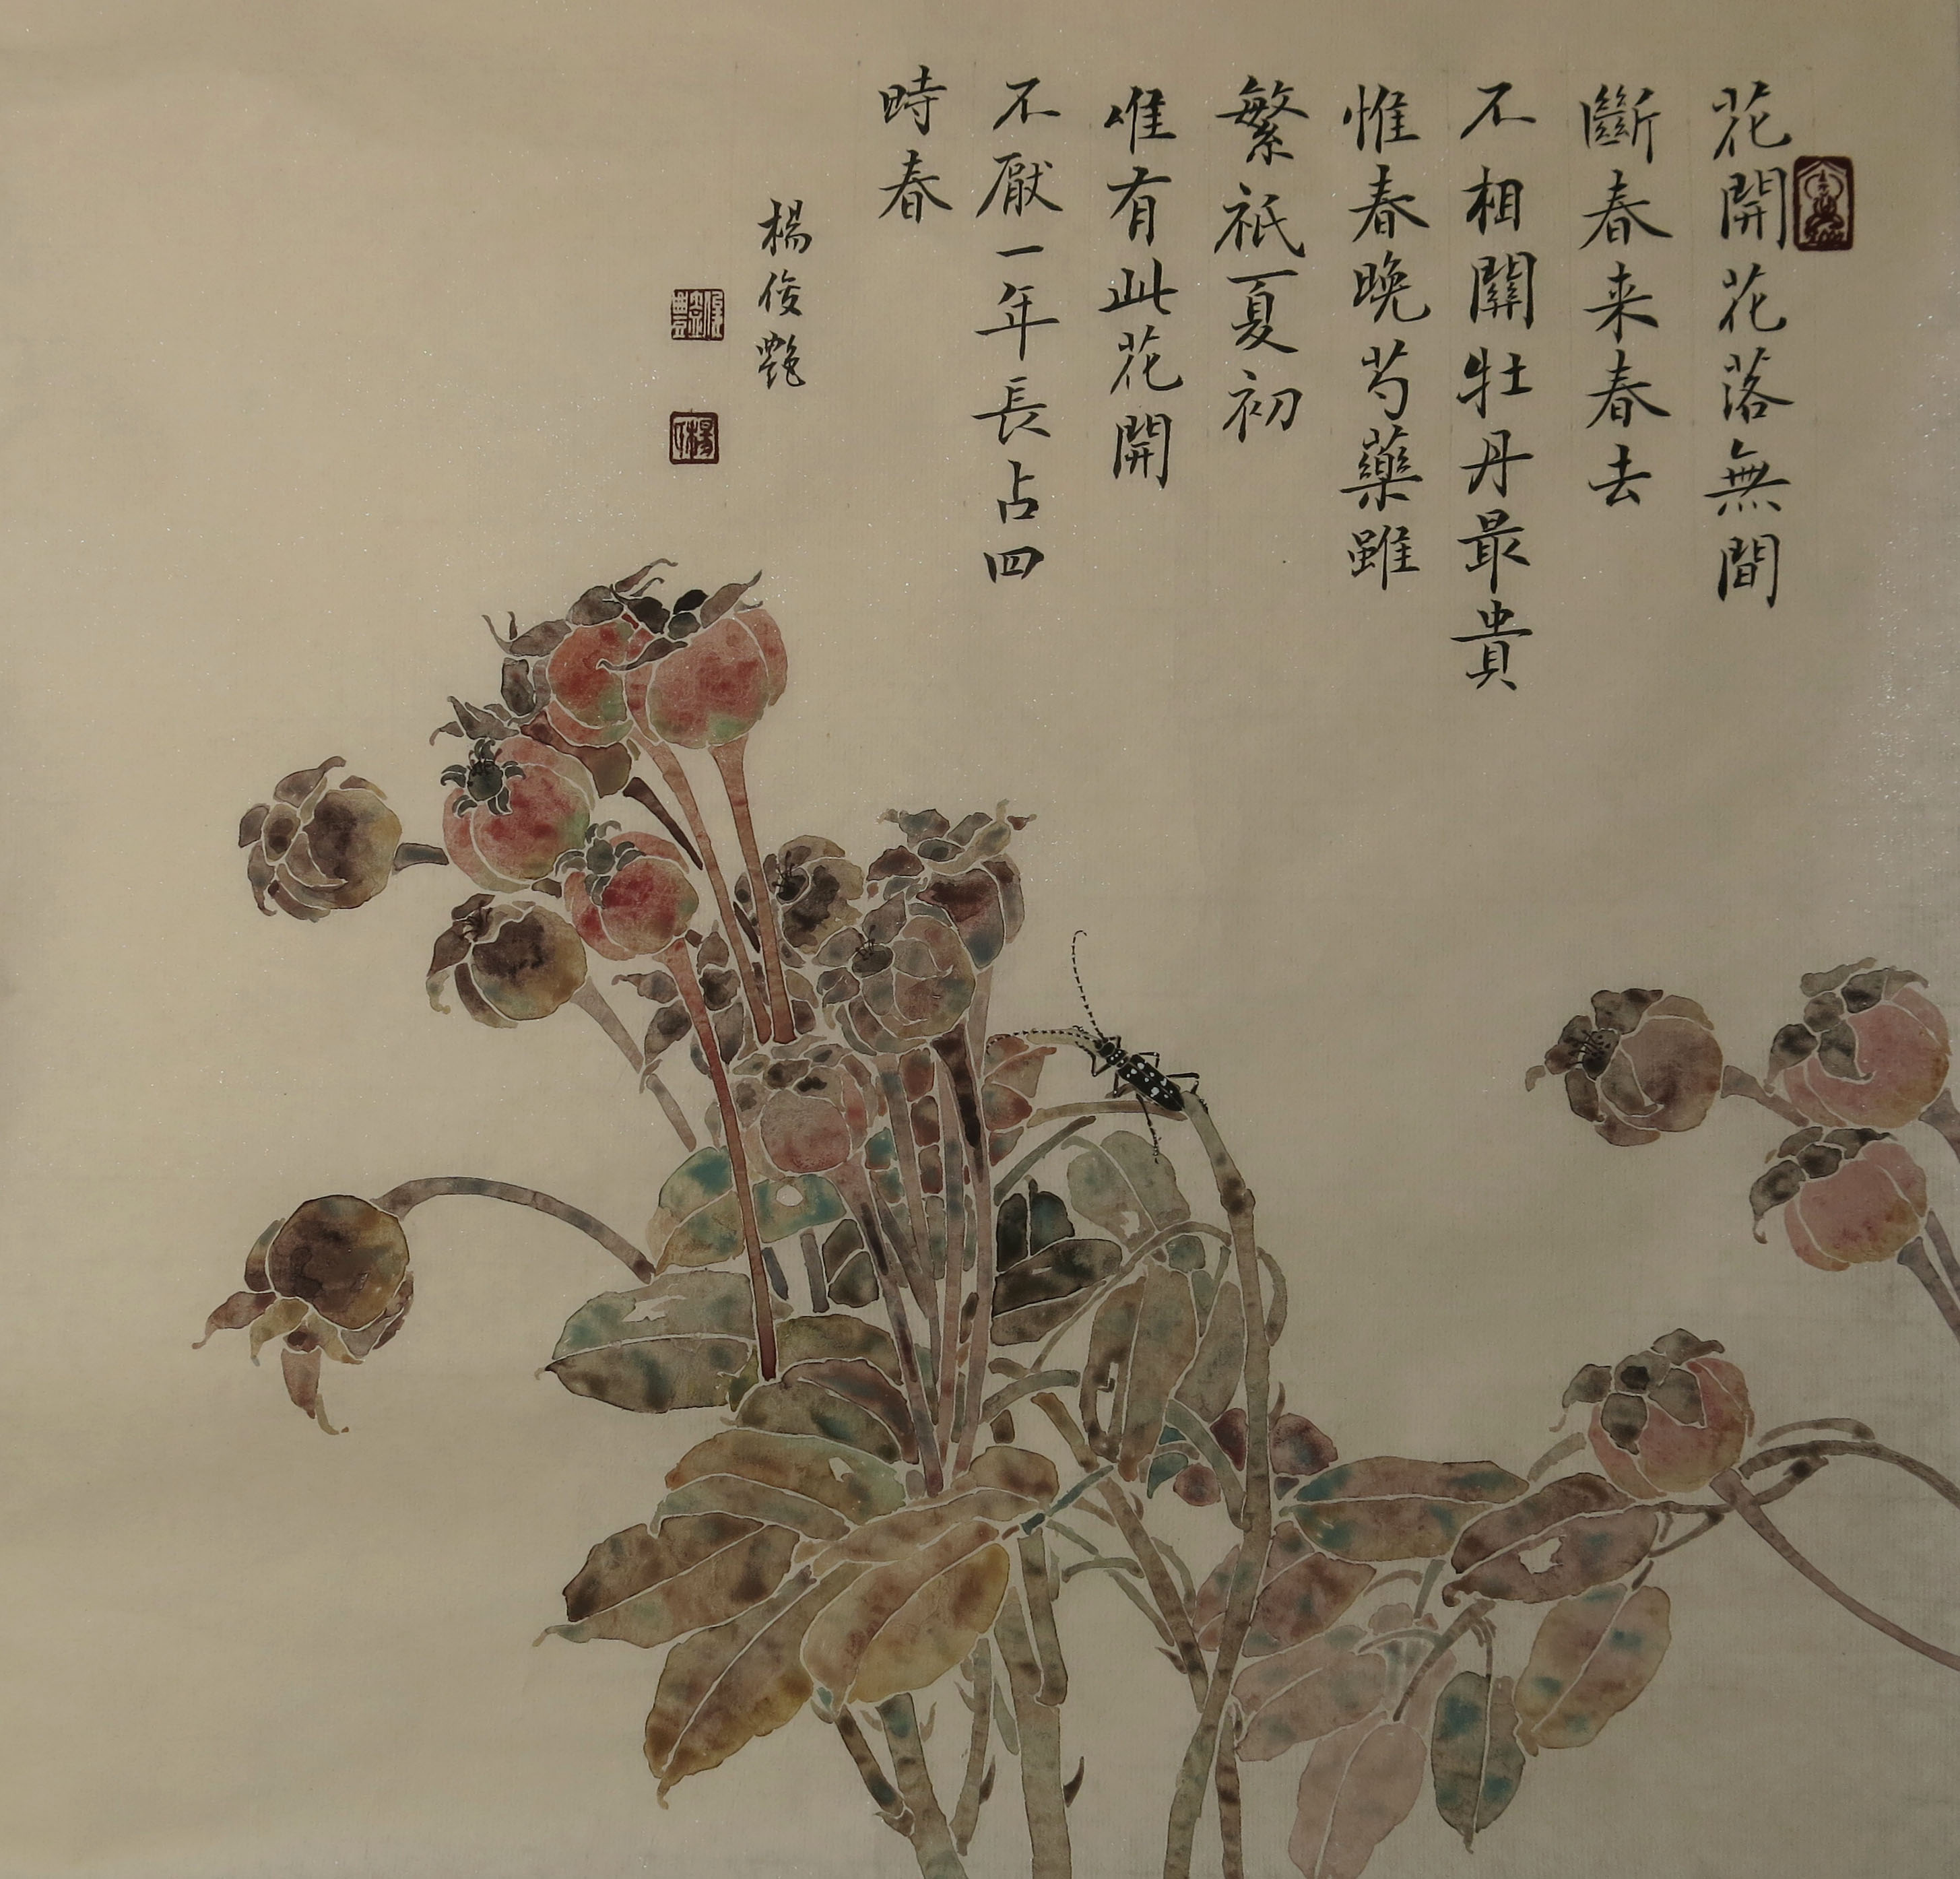 花開花落無間
斷春来春去
不相關牡丹最貴
惟春晚芍藥雖
繁衹夏初
唯有此花開
不厭一年長占四
時春
楊俊艷